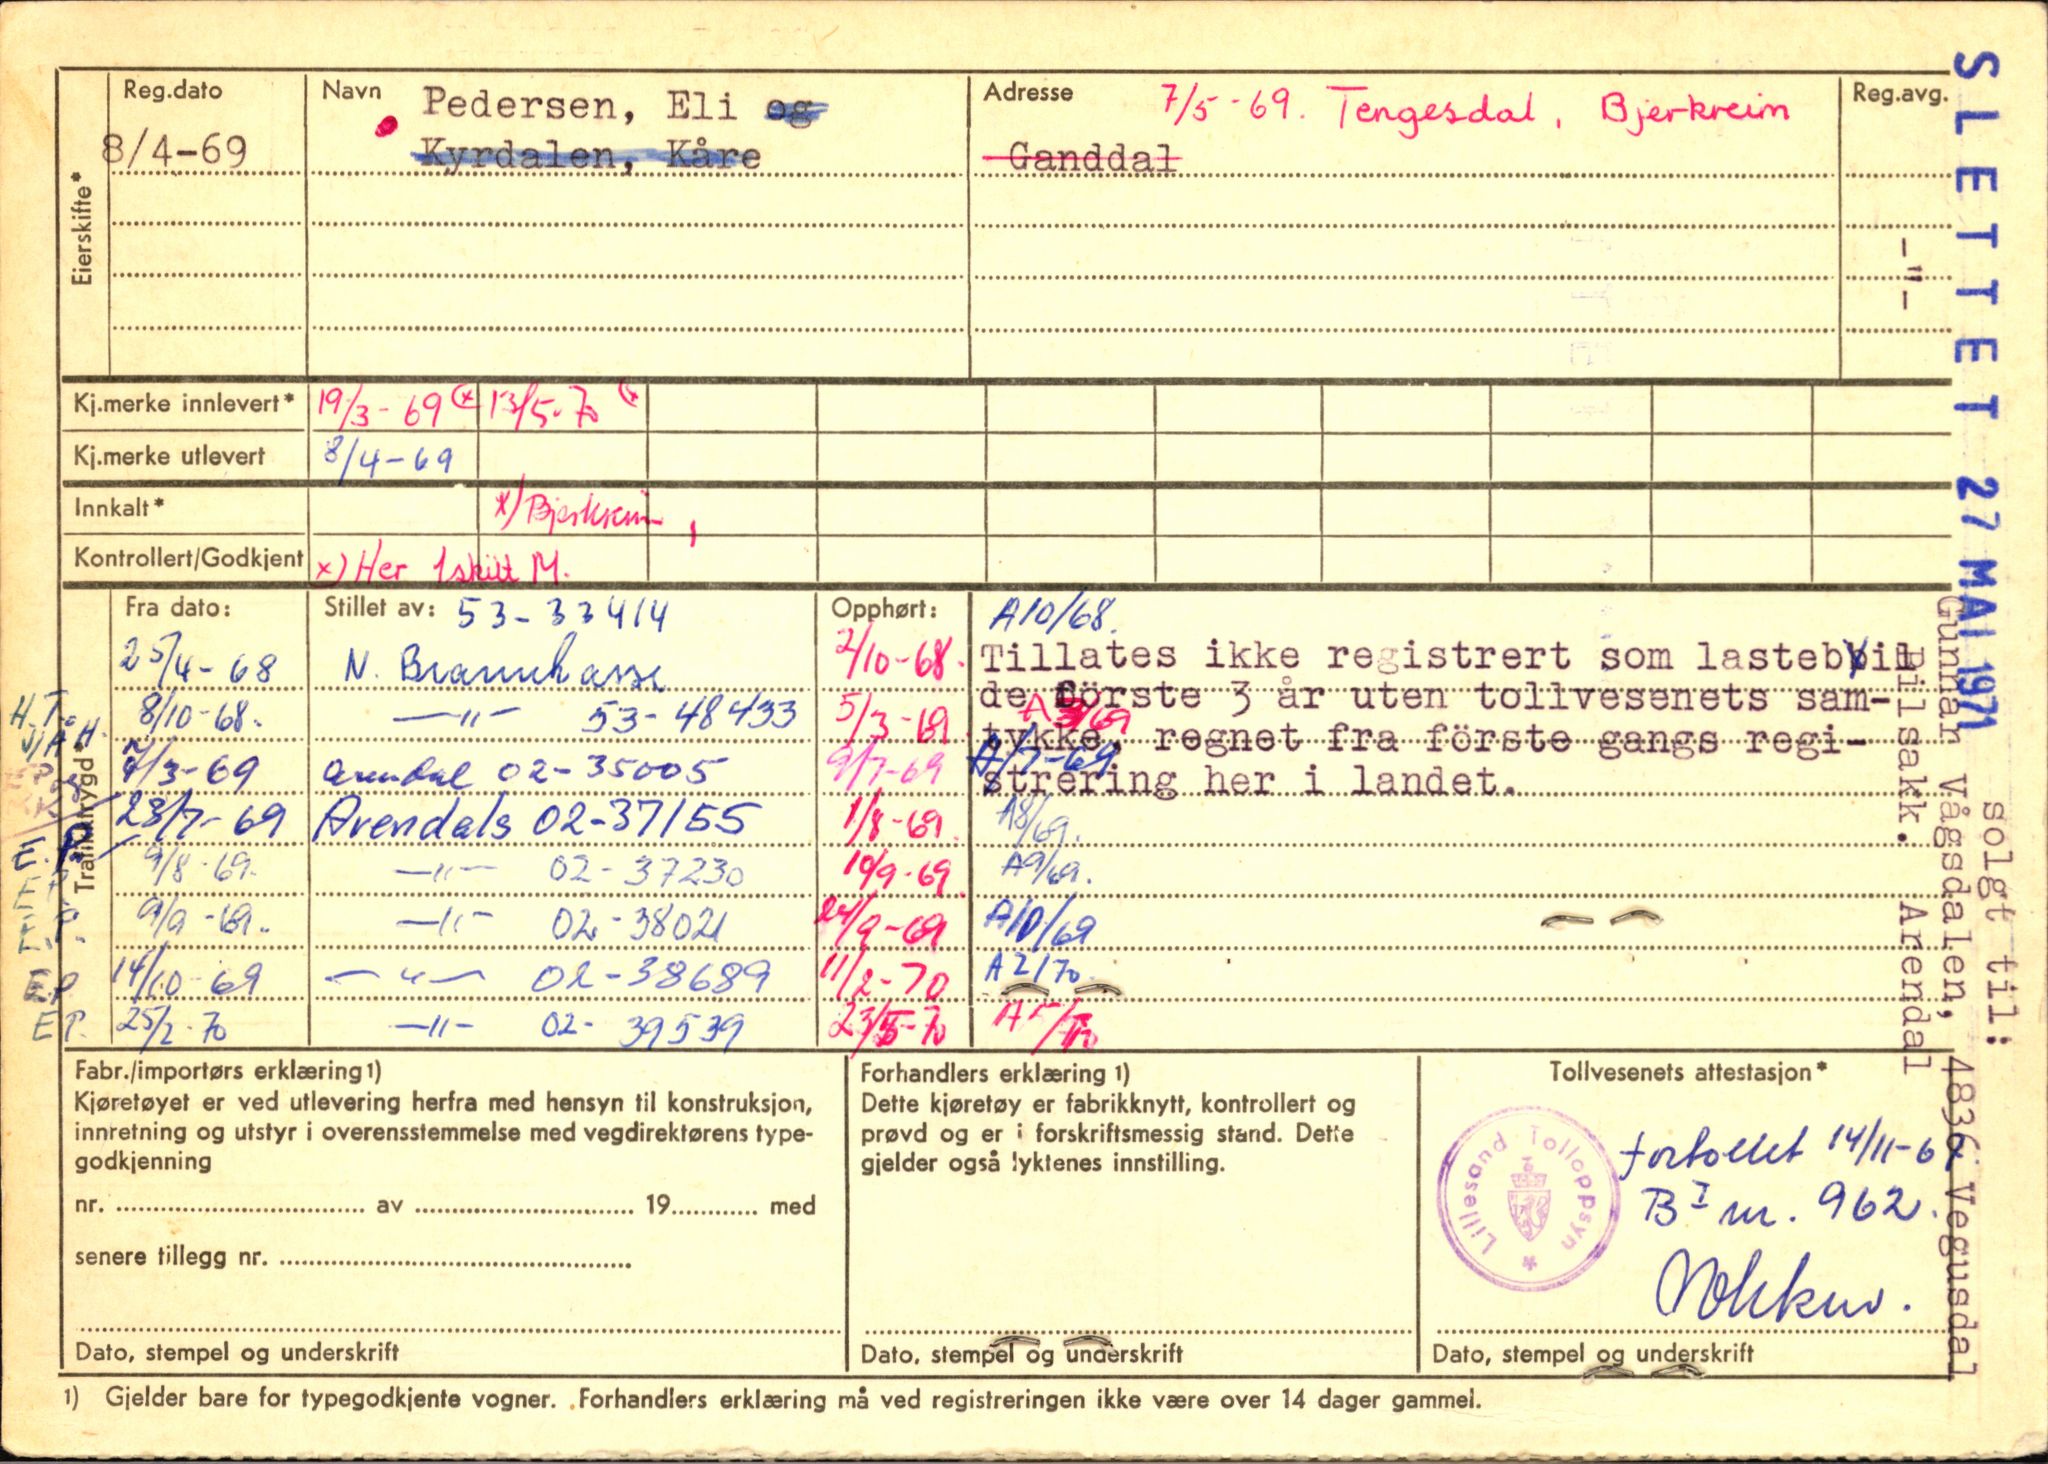 Reg.dato Navn Adresse Reg.avg.
8/4-69 Pedersen, Eli og 7/5-69. Tengesdal, Bjerkreim
Kyrdalen, Kåre Ganddal
Eierskifte*
-"-
Kj.merke innlevert* 19/3-69 (x 13/5-70 (x
Kj.merke utlevert 8/4-69
Innkalt* x) Bjerkreim
Kontrollert/Godkjent x) Her 1 skilt M.
Trafikktrygd*
Fra dato: Stillet av: 53-33414 Opphørt: A10/68.
25/4-68 N. Brannkasse 2/10-68.
H.T. 8/10-68. -"- 53-48433 5/3-69 A3/69
7/3-69 Arendal 02-35005 9/7-69 A/7-69
28/7-69 Arendals 02-37155 1/8-69. A8/69.
9/8-69. -"- 02-37230 10/9-69 A9/69.
9/9-69. -"- 02-38021 24/9-69 A10/69
E.P. 14/10-69 -"- 02-38689 11/2-70 A2/70.
E.P. 25/2-70 -"- 02-39539 23/5-70 A5/70
Tillates ikke registrert som lastebil
de förste 3 år uten tollvesenets sam-
tykke, regnet fra förste gangs regi-
strering her i landet.
Fabr./importørs erklæring 1)
Kjøretøyet er ved utlevering herfra med hensyn til konstruksjon,
innretning og utstyr i overensstemmelse med vegdirektørens type-
godkjenning
nr. av 19 med
senere tillegg nr.
Dato, stempel og underskrift
Forhandlers erklæring 1)
Dette kjøretøy er fabrikknytt, kontrollert og
prøvd og er i forskriftsmessig stand. Dette
gjelder også lyktenes innstilling.
Dato, stempel og underskrift
Tollvesenets attestasjon*
Lillesand Tolloppsyn
fortollet 14/11-67.
B I nr. 962.
Dato, stempel og underskrift
1) Gjelder bare for typegodkjente vogner. Forhandlers erklæring må ved registreringen ikke være over 14 dager gammel.
SLETTET 27 MAI 1971
solgt til:
Gunnar Vågsdalen, 4836 Vegusdal
Bilsakk. Arendal